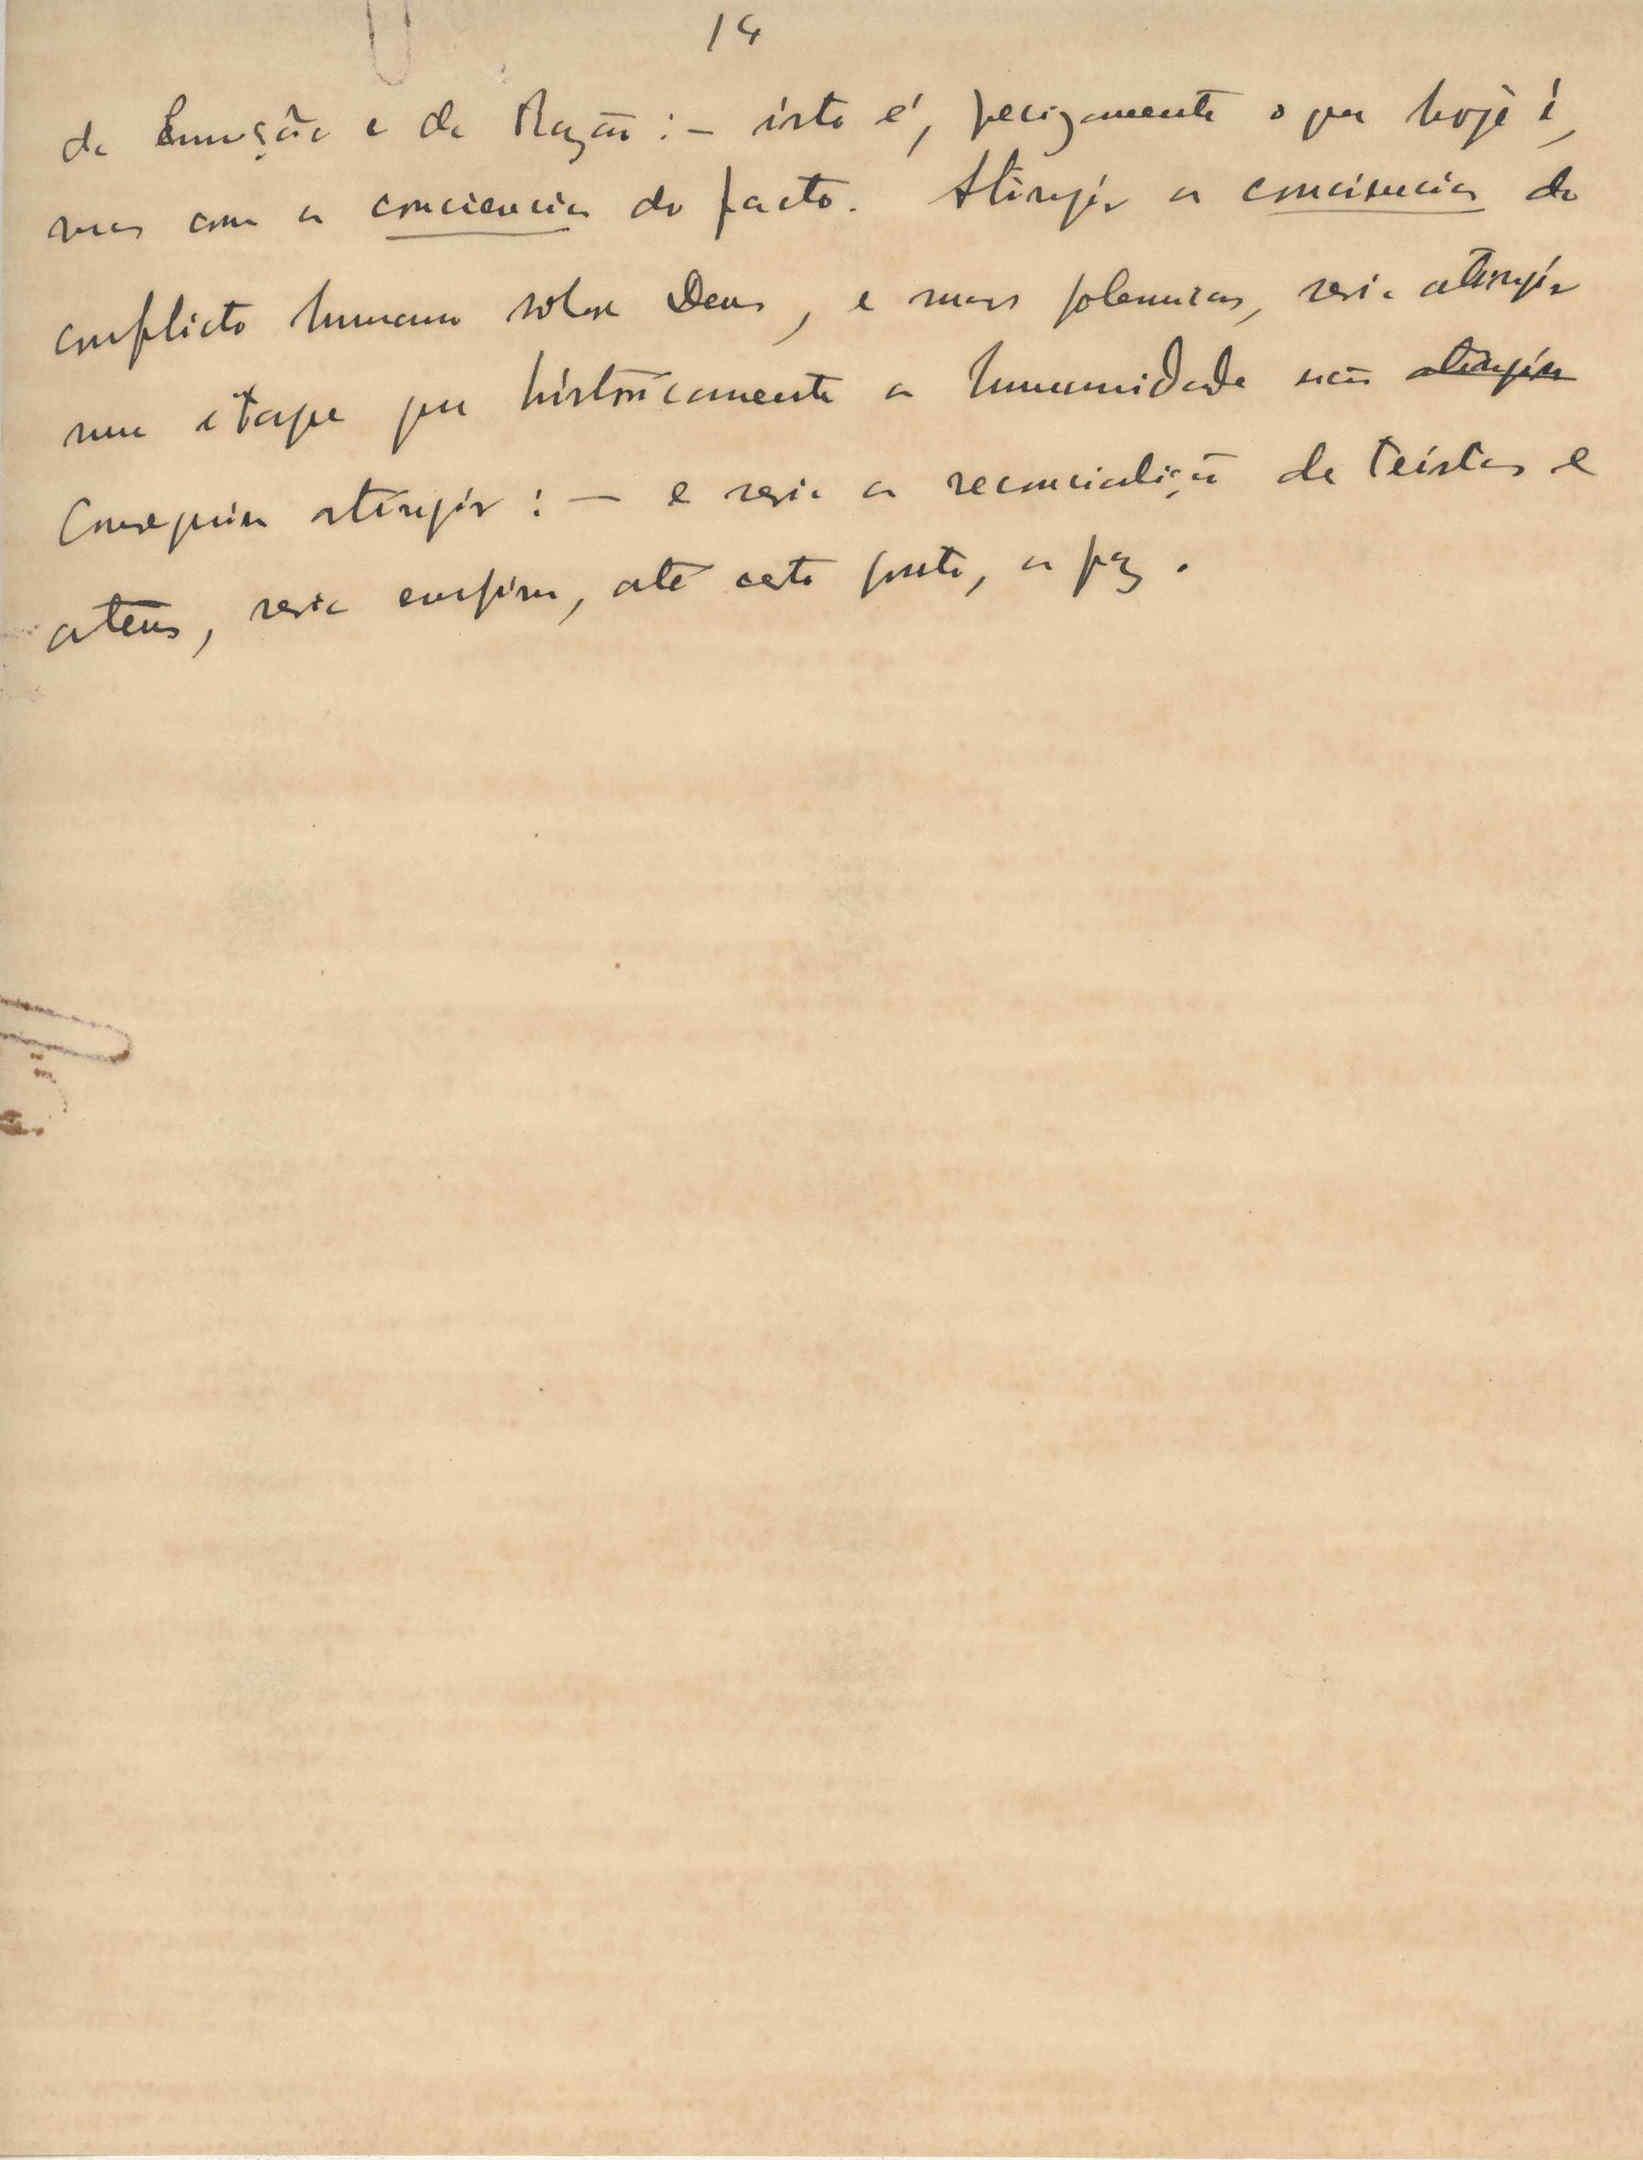 14
da Emoção e da Razão: – isto é, precizamente o que hoje é,
mas com a conciencia do facto. Atinjir a conciencia do
conflicto humano sobre Deus, e suas polemicas, seria atinjir
uma etape que históricamente a humanidade não atinjiu
conseguiu atinjir: – e seria a reconcialição de teístas e
ateus, seria emfim, até certo ponto, a paz.